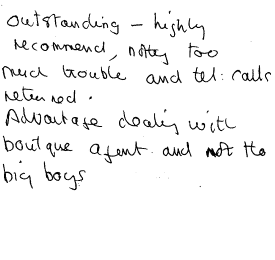 outstanding – highly
recommend, nothing too
much trouble and tel: calls
returned.
Advantage dealing with
boutique agent and not the
big boys